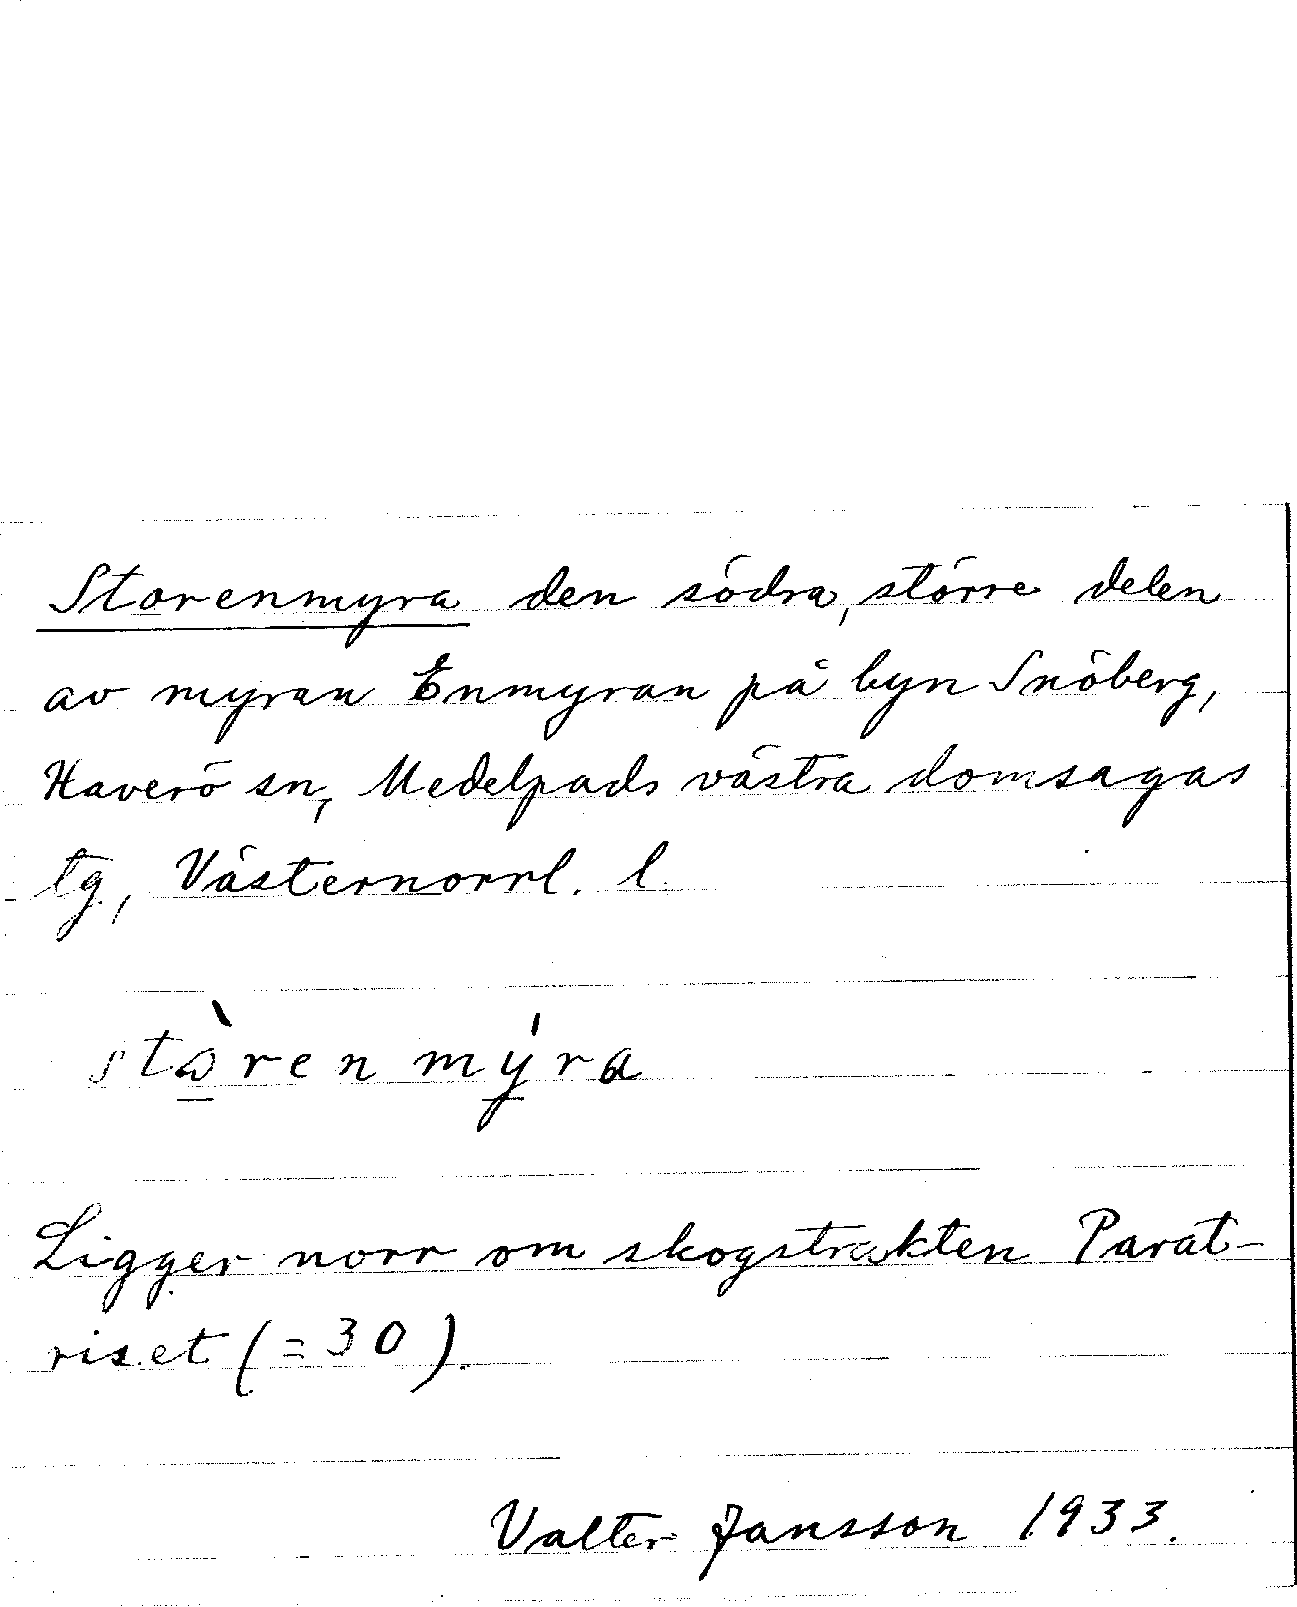 Storenmyra den södra, större delen
av myran Enmyran på byn Snöberg,
Haverö sn, Medelpads västra domsagas
tg, Västernorrl. l.
stòrenmýra
Ligger norr om skogstrakten Parat-
riset (=30).
Valter Jansson 1933.